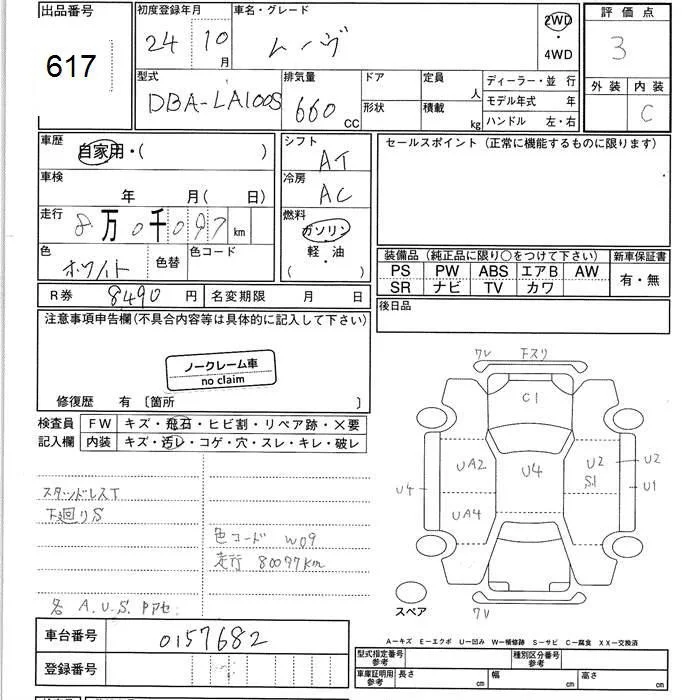 出品番号
617
初度登録年月
24 10月
車名・グレード
ムーヴ
2WD
・
4WD
評価点
3
外装 内装
C
型式
DBA-LA100S
排気量
660cc
ドア
形状
定員 人
積載 kg
ディーラー・並行
モデル年式 年
ハンドル 左・右
車歴
自家用・( )
車検
年 月( 日)
走行
8万0千097km
色
ホワイト
色替
色コード
シフト
AT
冷房
AC
燃料
ガソリン
軽・油
( )
セールスポイント (正常に機能するものに限ります)
装備品 (純正品に限り〇をつけて下さい)
PS PW ABS エアB AW
SR ナビ TV カワ
新車保証書
有・無
後日品
R券 8490円
名変期限 月 日
注意事項申告欄(不具合内容等は具体的に記入して下さい)
ノークレーム車
no claim
修復歴 有 〔箇所 〕
検査員
記入欄
FW キズ・飛石・ヒビ割・リペア跡・×要
内装 キズ・汚レ・コゲ・穴・スレ・キレ・破レ
スタッドレスT
下廻りS
色コード W09
走行 80097km
各 A.U.S. アアセ.
車台番号 0157682
登録番号
7V 下スリ
C1
UA2 U4 U2 S1 U2
U4 U1
UA4
スペア
7V
A-キズ E-エクボ U-凹み W-補修跡 S-サビ C-腐食 XX-交換済
型式指定番号
参考
種別区分番号
参考
車庫証明用
参考
長さ cm 幅 cm 高さ cm